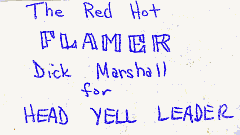 The Red Hot
FLAMER
Dick Marshall
for
HEAD YELL LEADER